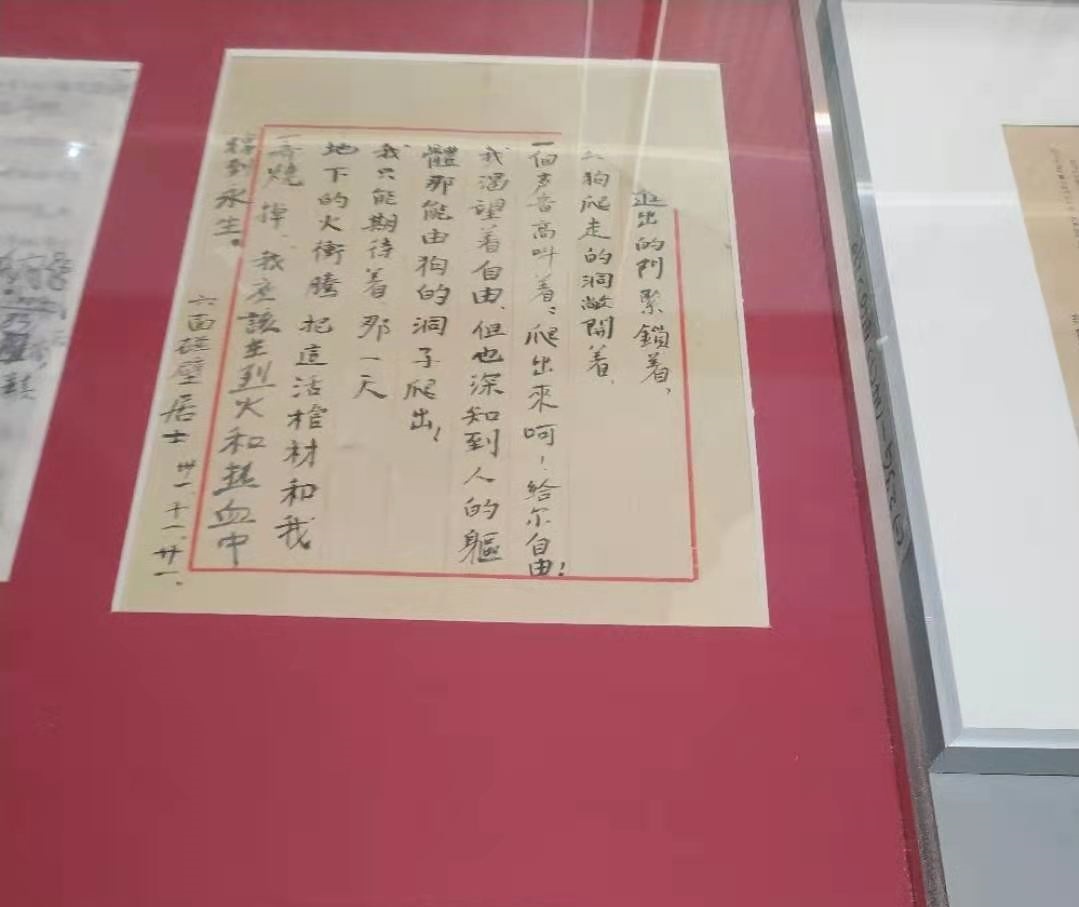 出的門緊鎖着、
狗爬走的洞敞開着、
一個声音高叫着：爬出來呵！給尔自由！
我渴望着自由、但也深知到人的軀
體那能由狗的洞子爬出！
我只能期待着那一天
地下的火衝騰把這活棺材和我
一齊燒掉、我应該在烈火和热血中
得到永生。
六面碰壁居士 卅一、十一、廿一.